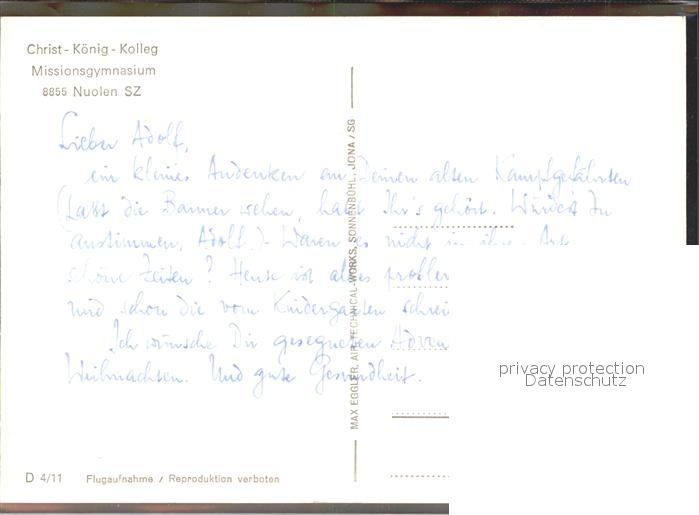 Christ-König-Kolleg
Missionsgymnasium
8855 Nuolen SZ
Lieber Adolf,
ein kleines Andenken an Deinen alten Kampfgefährten
(Lasst die Banner wehen, habt Ihr's gehört. Würdest Du
anstimmen, Adolf.) Waren es nicht in ihrer Art
schöne Zeiten? Heute ist alles
und schon die vom Kindergarten
Ich wünsche Dir gesegneten
Weihnachten. Und gute Gesundheit.
MAX EGGLER, AIR-TECHNICAL-WORKS, SONNENBÜHL, JONA / SG
privacy protection
Datenschutz
D 4/11 Flugaufnahme / Reproduktion verboten